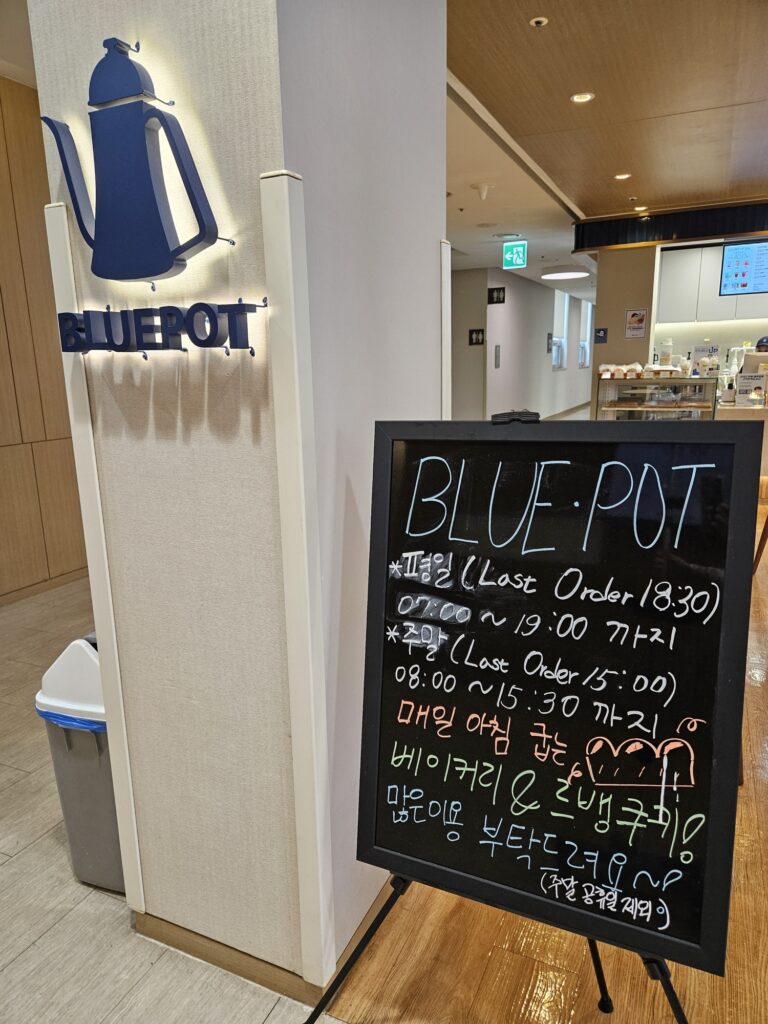 BLUEPOT
BLUE·POT
*평일 (Last Order 18:30)
07:00 ~ 19:00 까지
*주말 (Last Order 15:00)
08:00 ~ 15:30 까지
매일 아침 굽는
베이커리 & 르뱅쿠키!
많은이용 부탁드려요~
(주말 공휴일 제외)